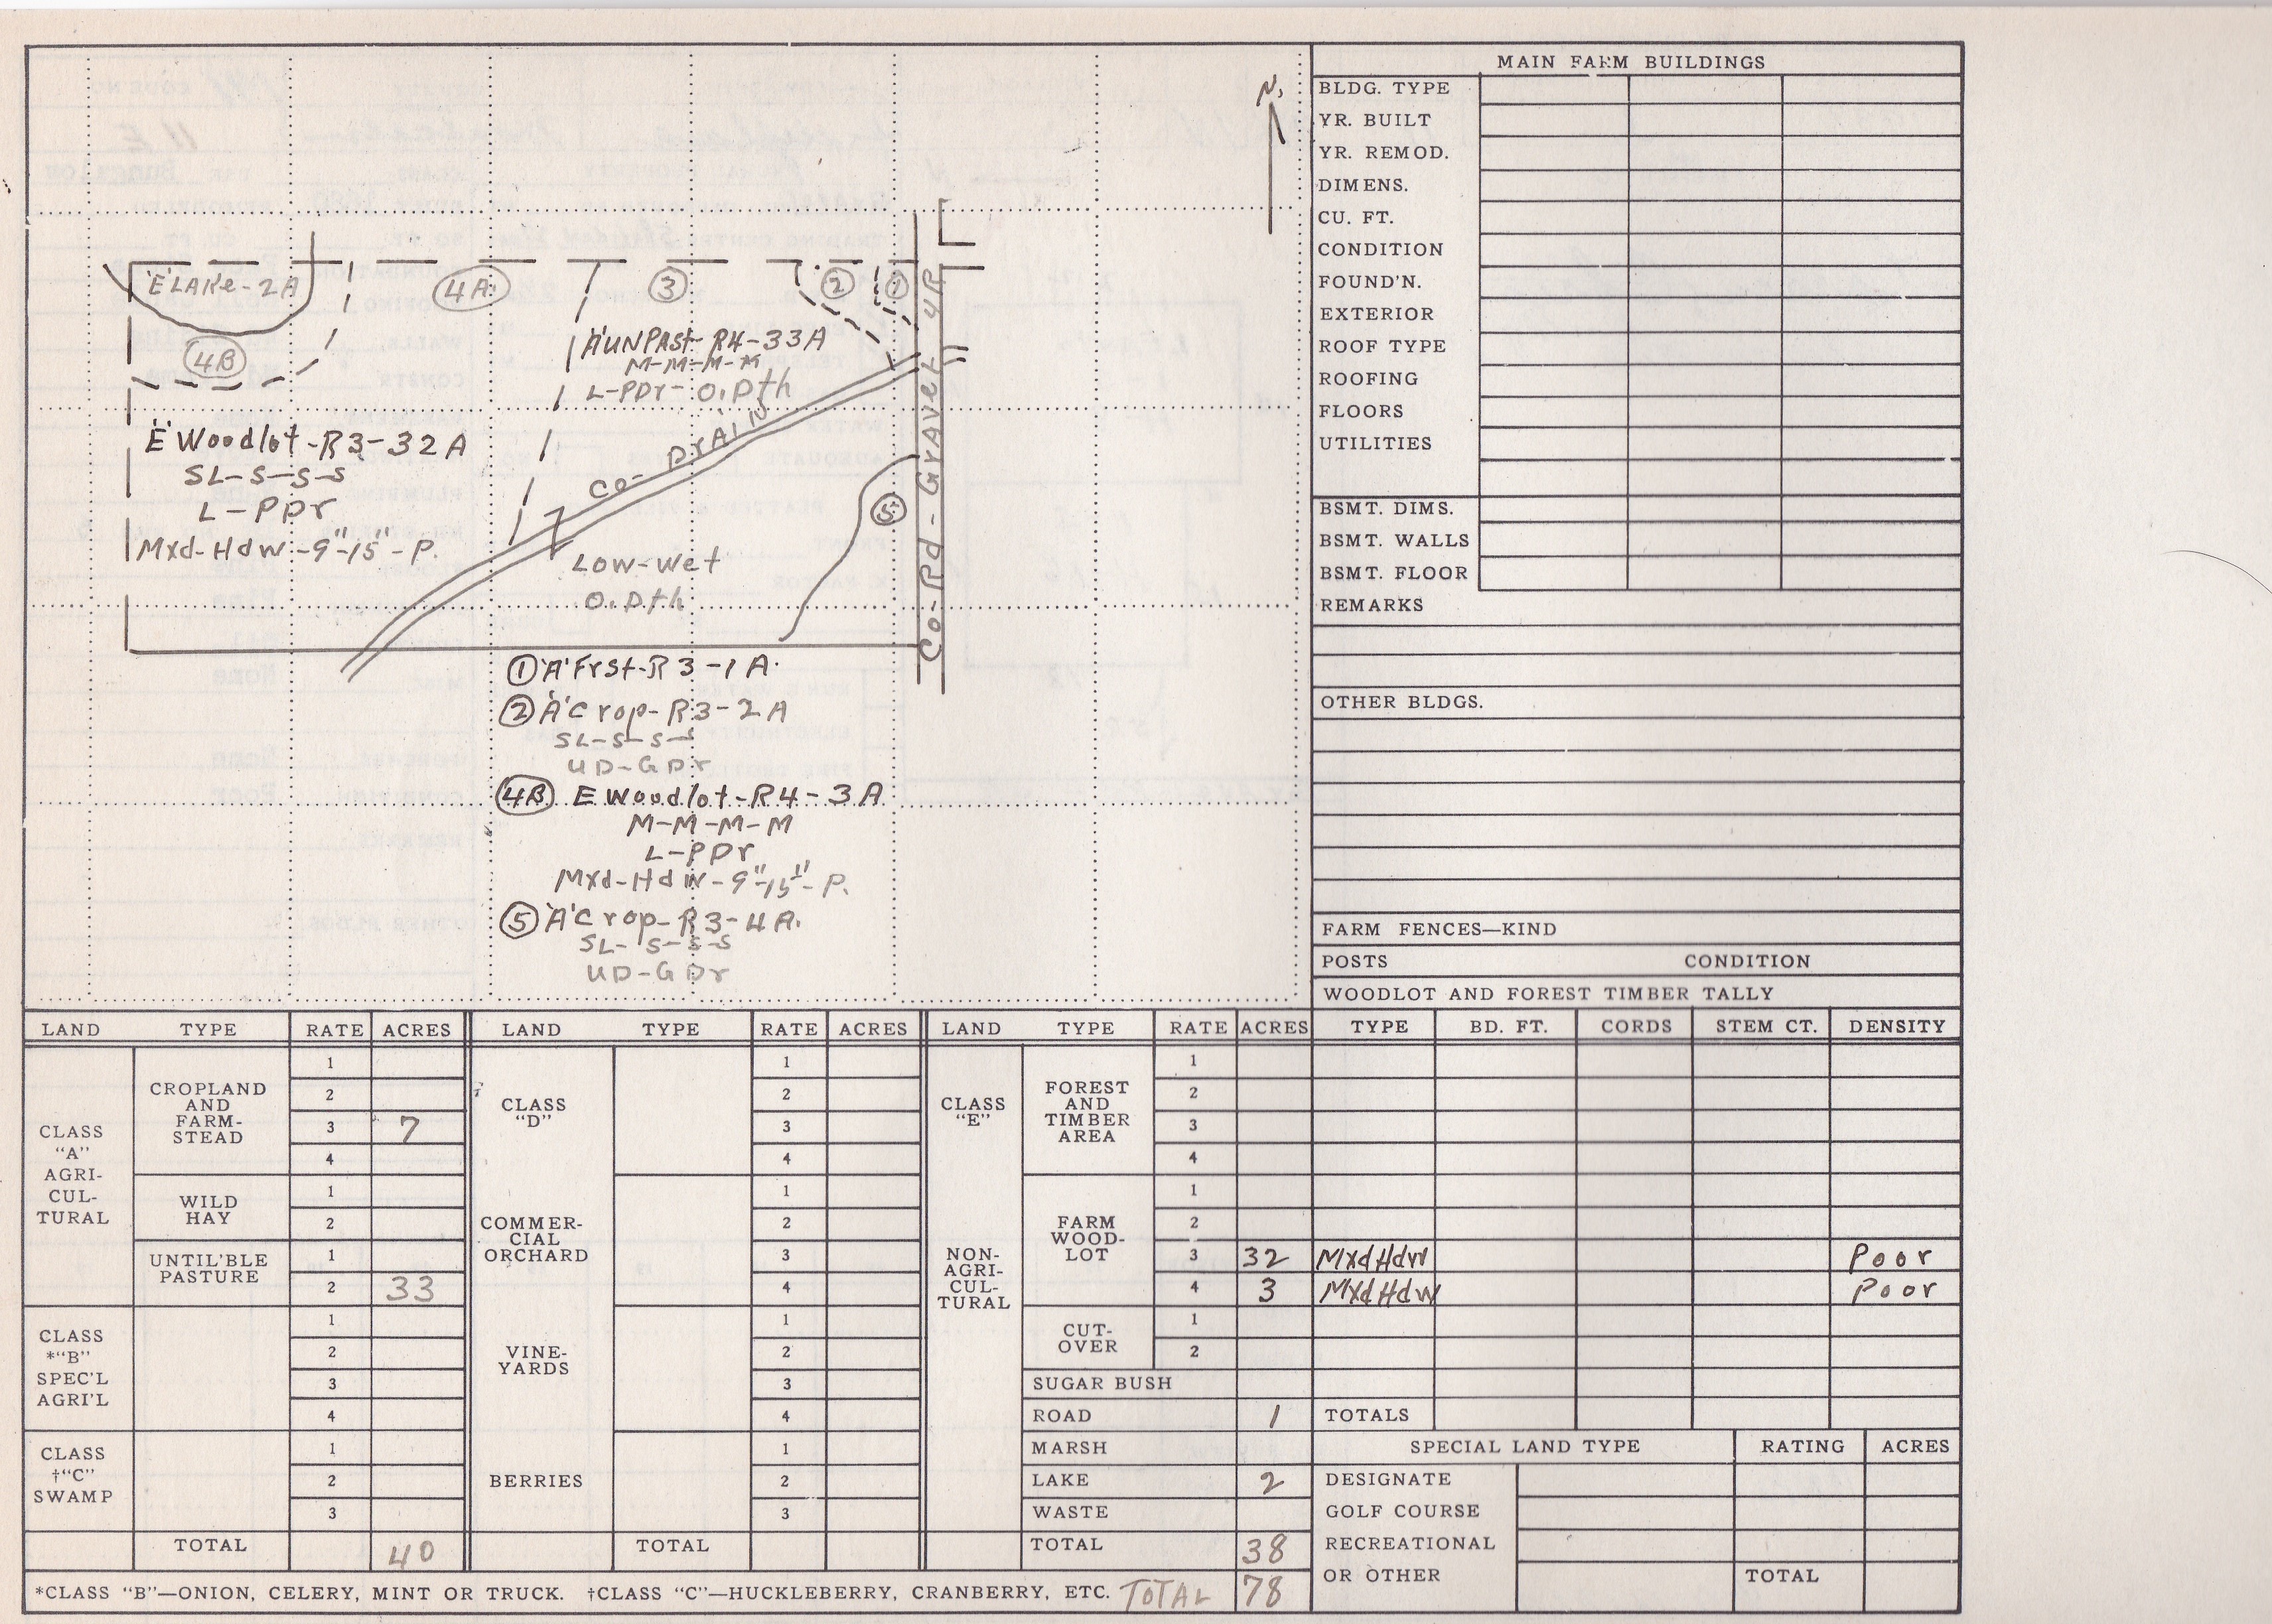 N.
'E' LAKe-2A
4A
3
2
1
4B
'A' UNPAst-R4-33A
M-M-M-M
L-PDr- O.Dth
'E' Woodlot-R3-32A
SL-S-S-S
L-PDr
Mxd-Hdw-9"-15"-P.
Co- DrAiN
5
Low-wet
O.Dth
Co-Rd-GrAveL 4R
① 'A' Frst-R3-1A.
② 'A' Crop-R3-2A
SL-S-S-S
UD-GDr
4B E Woodlot-R4-3A
M-M-M-M
L-PDr
Mxd-Hdw-9"-15"-P.
⑤ 'A' Crop-R3-4A.
SL-S-S-S
UD-GDr
MAIN FARM BUILDINGS
BLDG. TYPE
YR. BUILT
YR. REMOD.
DIMENS.
CU. FT.
CONDITION
FOUND'N.
EXTERIOR
ROOF TYPE
ROOFING
FLOORS
UTILITIES
BSMT. DIMS.
BSMT. WALLS
BSMT. FLOOR
REMARKS
OTHER BLDGS.
FARM FENCES—KIND
POSTS CONDITION
WOODLOT AND FOREST TIMBER TALLY
LAND TYPE RATE ACRES LAND TYPE RATE ACRES LAND TYPE RATE ACRES TYPE BD. FT. CORDS STEM CT. DENSITY
CLASS
"A"
AGRI-
CUL-
TURAL
CROPLAND
AND
FARM-
STEAD
1
2
3 7
4
WILD
HAY
1
2
UNTIL'BLE
PASTURE
1
2 33
CLASS
*"B"
SPEC'L
AGRI'L
1
2
3
4
CLASS
†"C"
SWAMP
1
2
3
TOTAL 40
CLASS
"D"
1
2
3
4
COMMER-
CIAL
ORCHARD
1
2
3
4
VINE-
YARDS
1
2
3
4
BERRIES
1
2
3
TOTAL
CLASS
"E"
NON-
AGRI-
CUL-
TURAL
FOREST
AND
TIMBER
AREA
1
2
3
4
FARM
WOOD-
LOT
1
2
3 32 MxdHdw Poor
4 3 MxdHdw Poor
CUT-
OVER
1
2
SUGAR BUSH
ROAD 1
MARSH
LAKE 2
WASTE
TOTAL 38
TOTALS
SPECIAL LAND TYPE RATING ACRES
DESIGNATE
GOLF COURSE
RECREATIONAL
OR OTHER TOTAL
*CLASS "B"—ONION, CELERY, MINT OR TRUCK. †CLASS "C"—HUCKLEBERRY, CRANBERRY, ETC. TOTAL 78